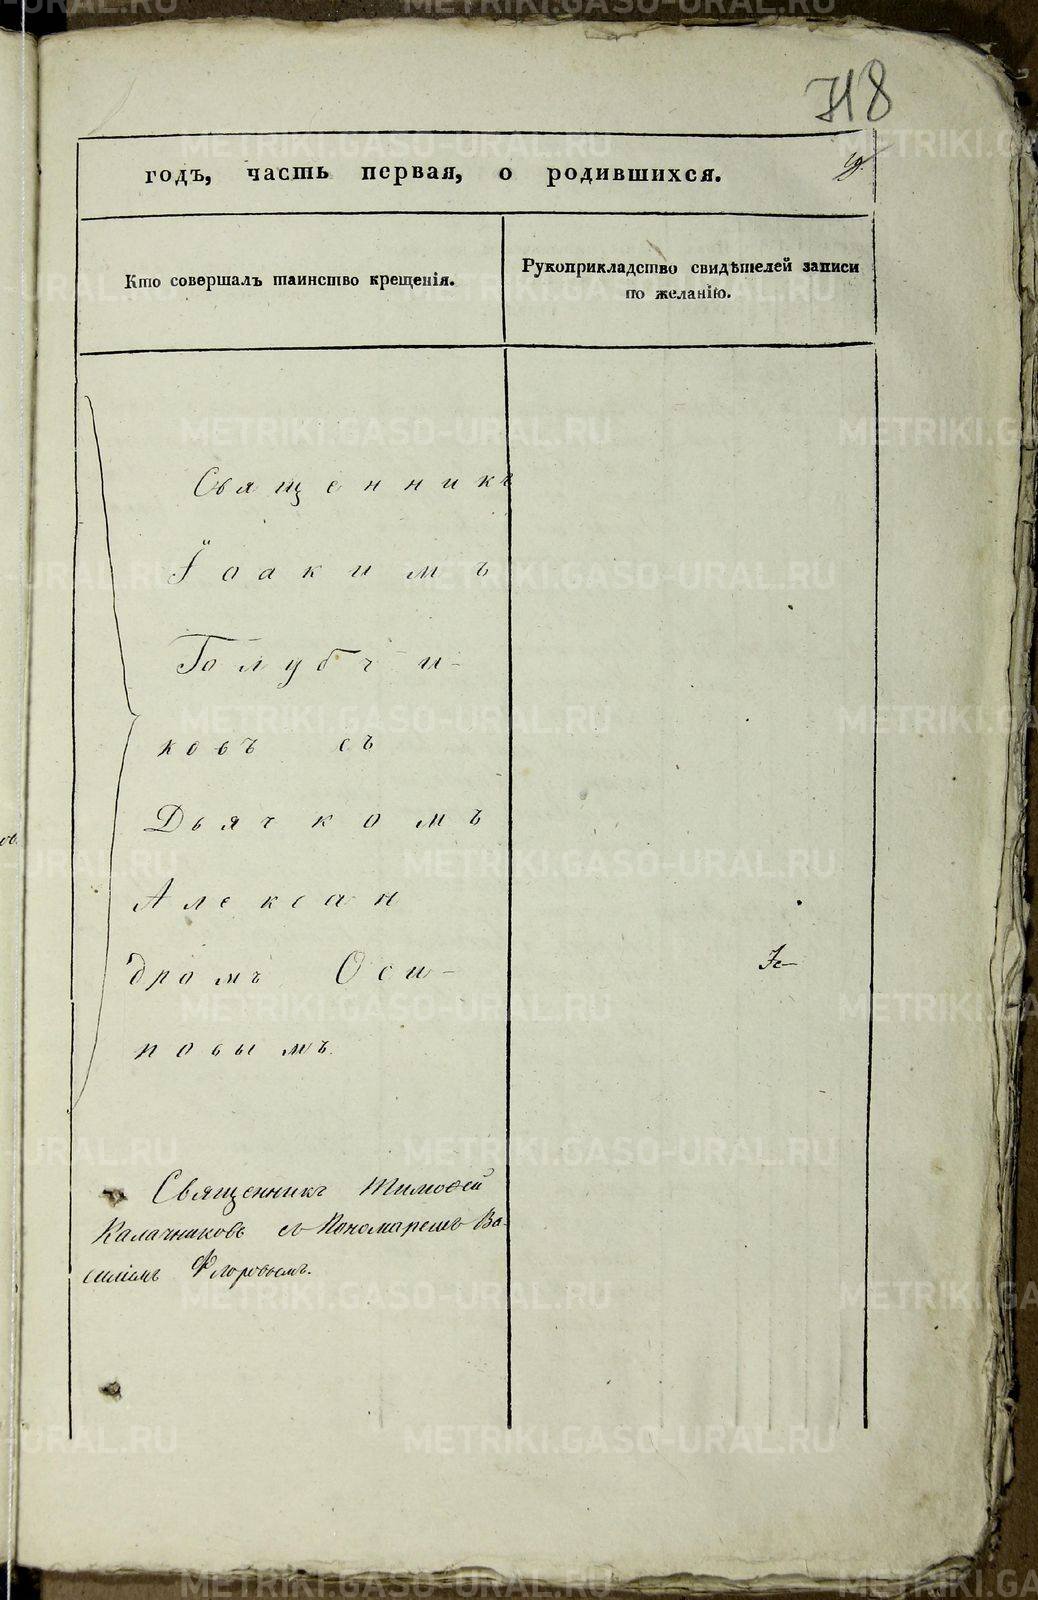 718
годъ, часть первая, о родившихся.
Кто совершалъ таинство крещенія.
Рукоприкладство свидѣтелей записи
по желанію.
Священникъ
Іоакимъ
Голубчи-
ковъ съ
Дьячкомъ
Алексан
дромъ Оси-
повымъ.
Священникъ Тимофей
Калачниковъ съ Пономаремъ Ва-
силіемъ Флоровымъ.
METRIKI.GASO-URAL.RU